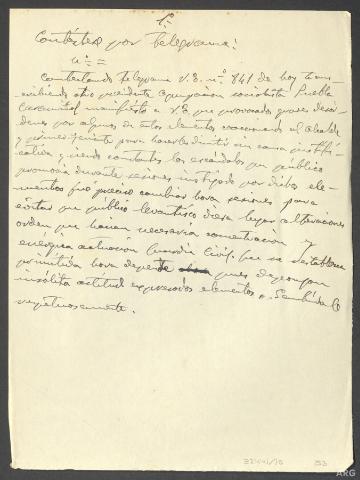 Contéstese por telegrama:
nº =
Contestando telegrama V.E. nº 841 de hoy trans-
cribiendo otro presidente agrupación socialista Puebla
manifiesto a V.E. que provocados graves desór-
denes por algunos de estos elementos coaccionando al Alcalde
y primer teniente para hacerles dimitir sin causa justifi-
cativa y siendo constantes los escándalos que público
promovía durante sesiones instigado por dichos ele-
mentos fue preciso cambiar hora sesiones para
evitar que público levantisco diera lugar alteraciones
orden que hacían necesaria concentración y
enérgica actuación Guardia Civil, que se restablecerá
primitiva hora pues depongan
insólita actitud expresados elementos. Salúdale
respetuosamente.
ARG